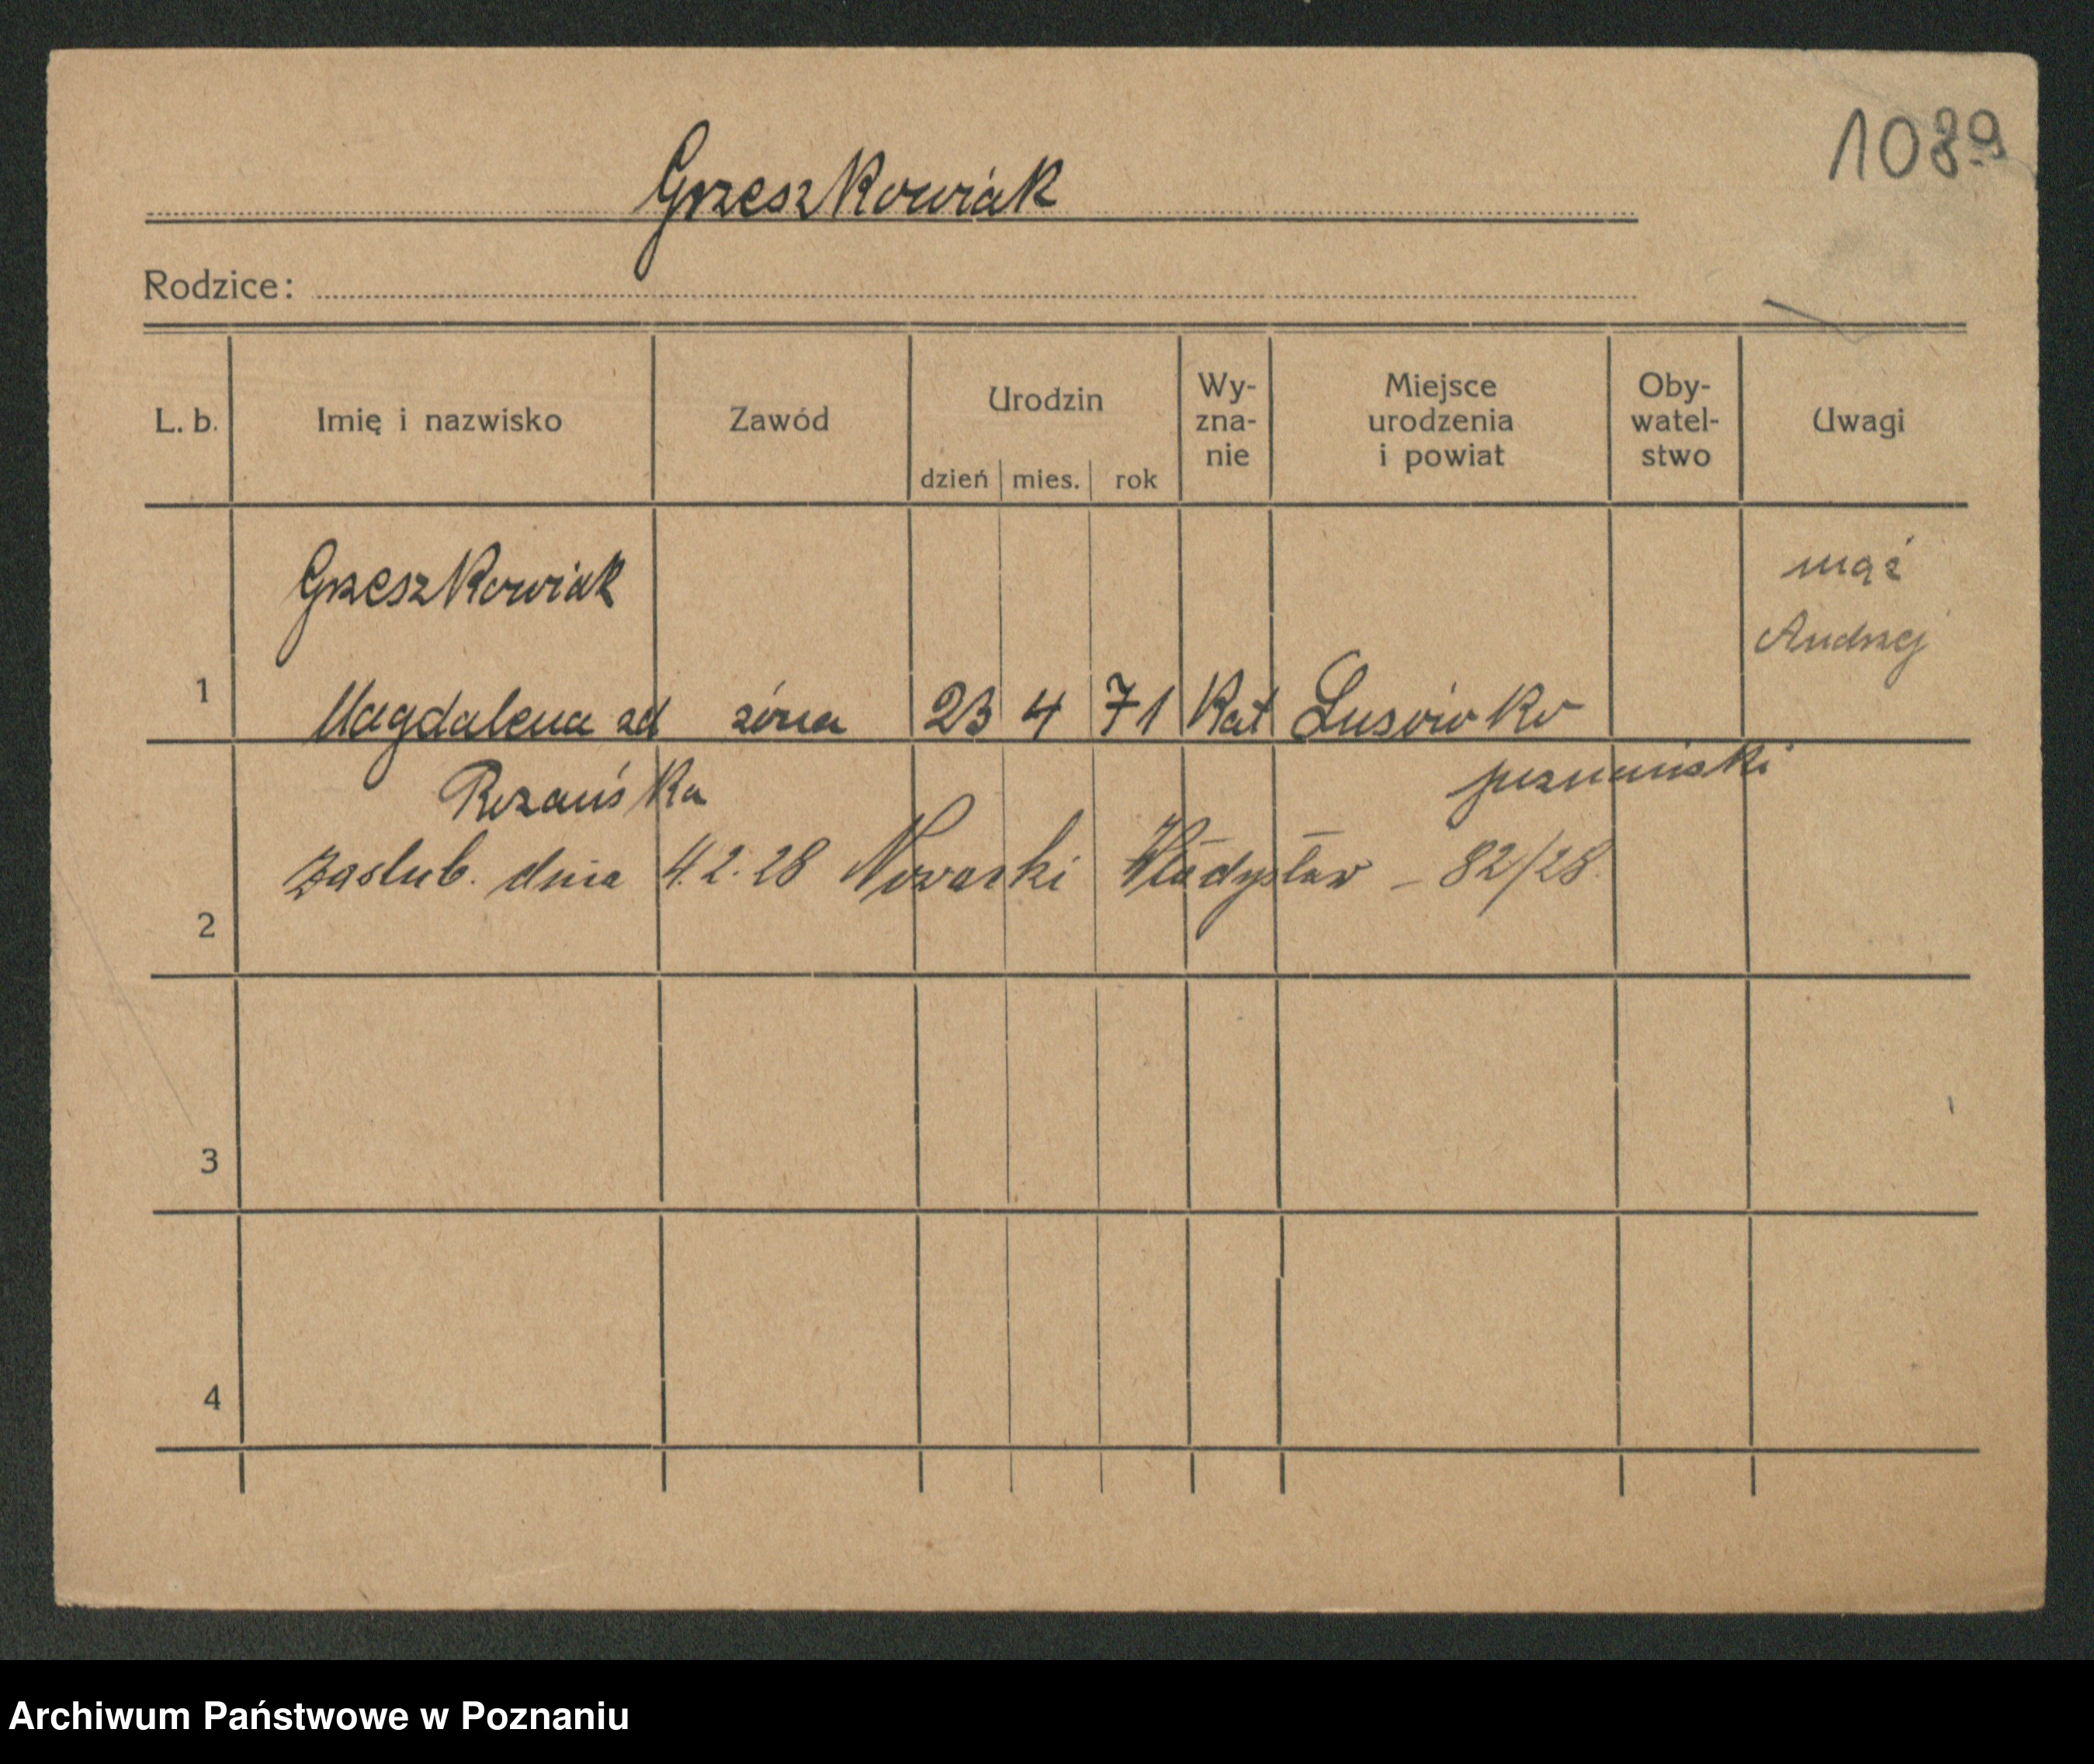 1089
Grzeszkowiak
Rodzice:
L. b. Imię i nazwisko Zawód Urodzin dzień mies. rok Wy-zna-nie Miejsce urodzenia i powiat Oby-watel-stwo Uwagi
Grzeszkowiak mąż
Andrzej
1 Magdalena zd żona 23 4 71 Kat Lusówko
poznański
zaślub. dnia 4.2.28 Nowacki Władysław – 82/28.
2
3
4
Archiwum Państwowe w Poznaniu